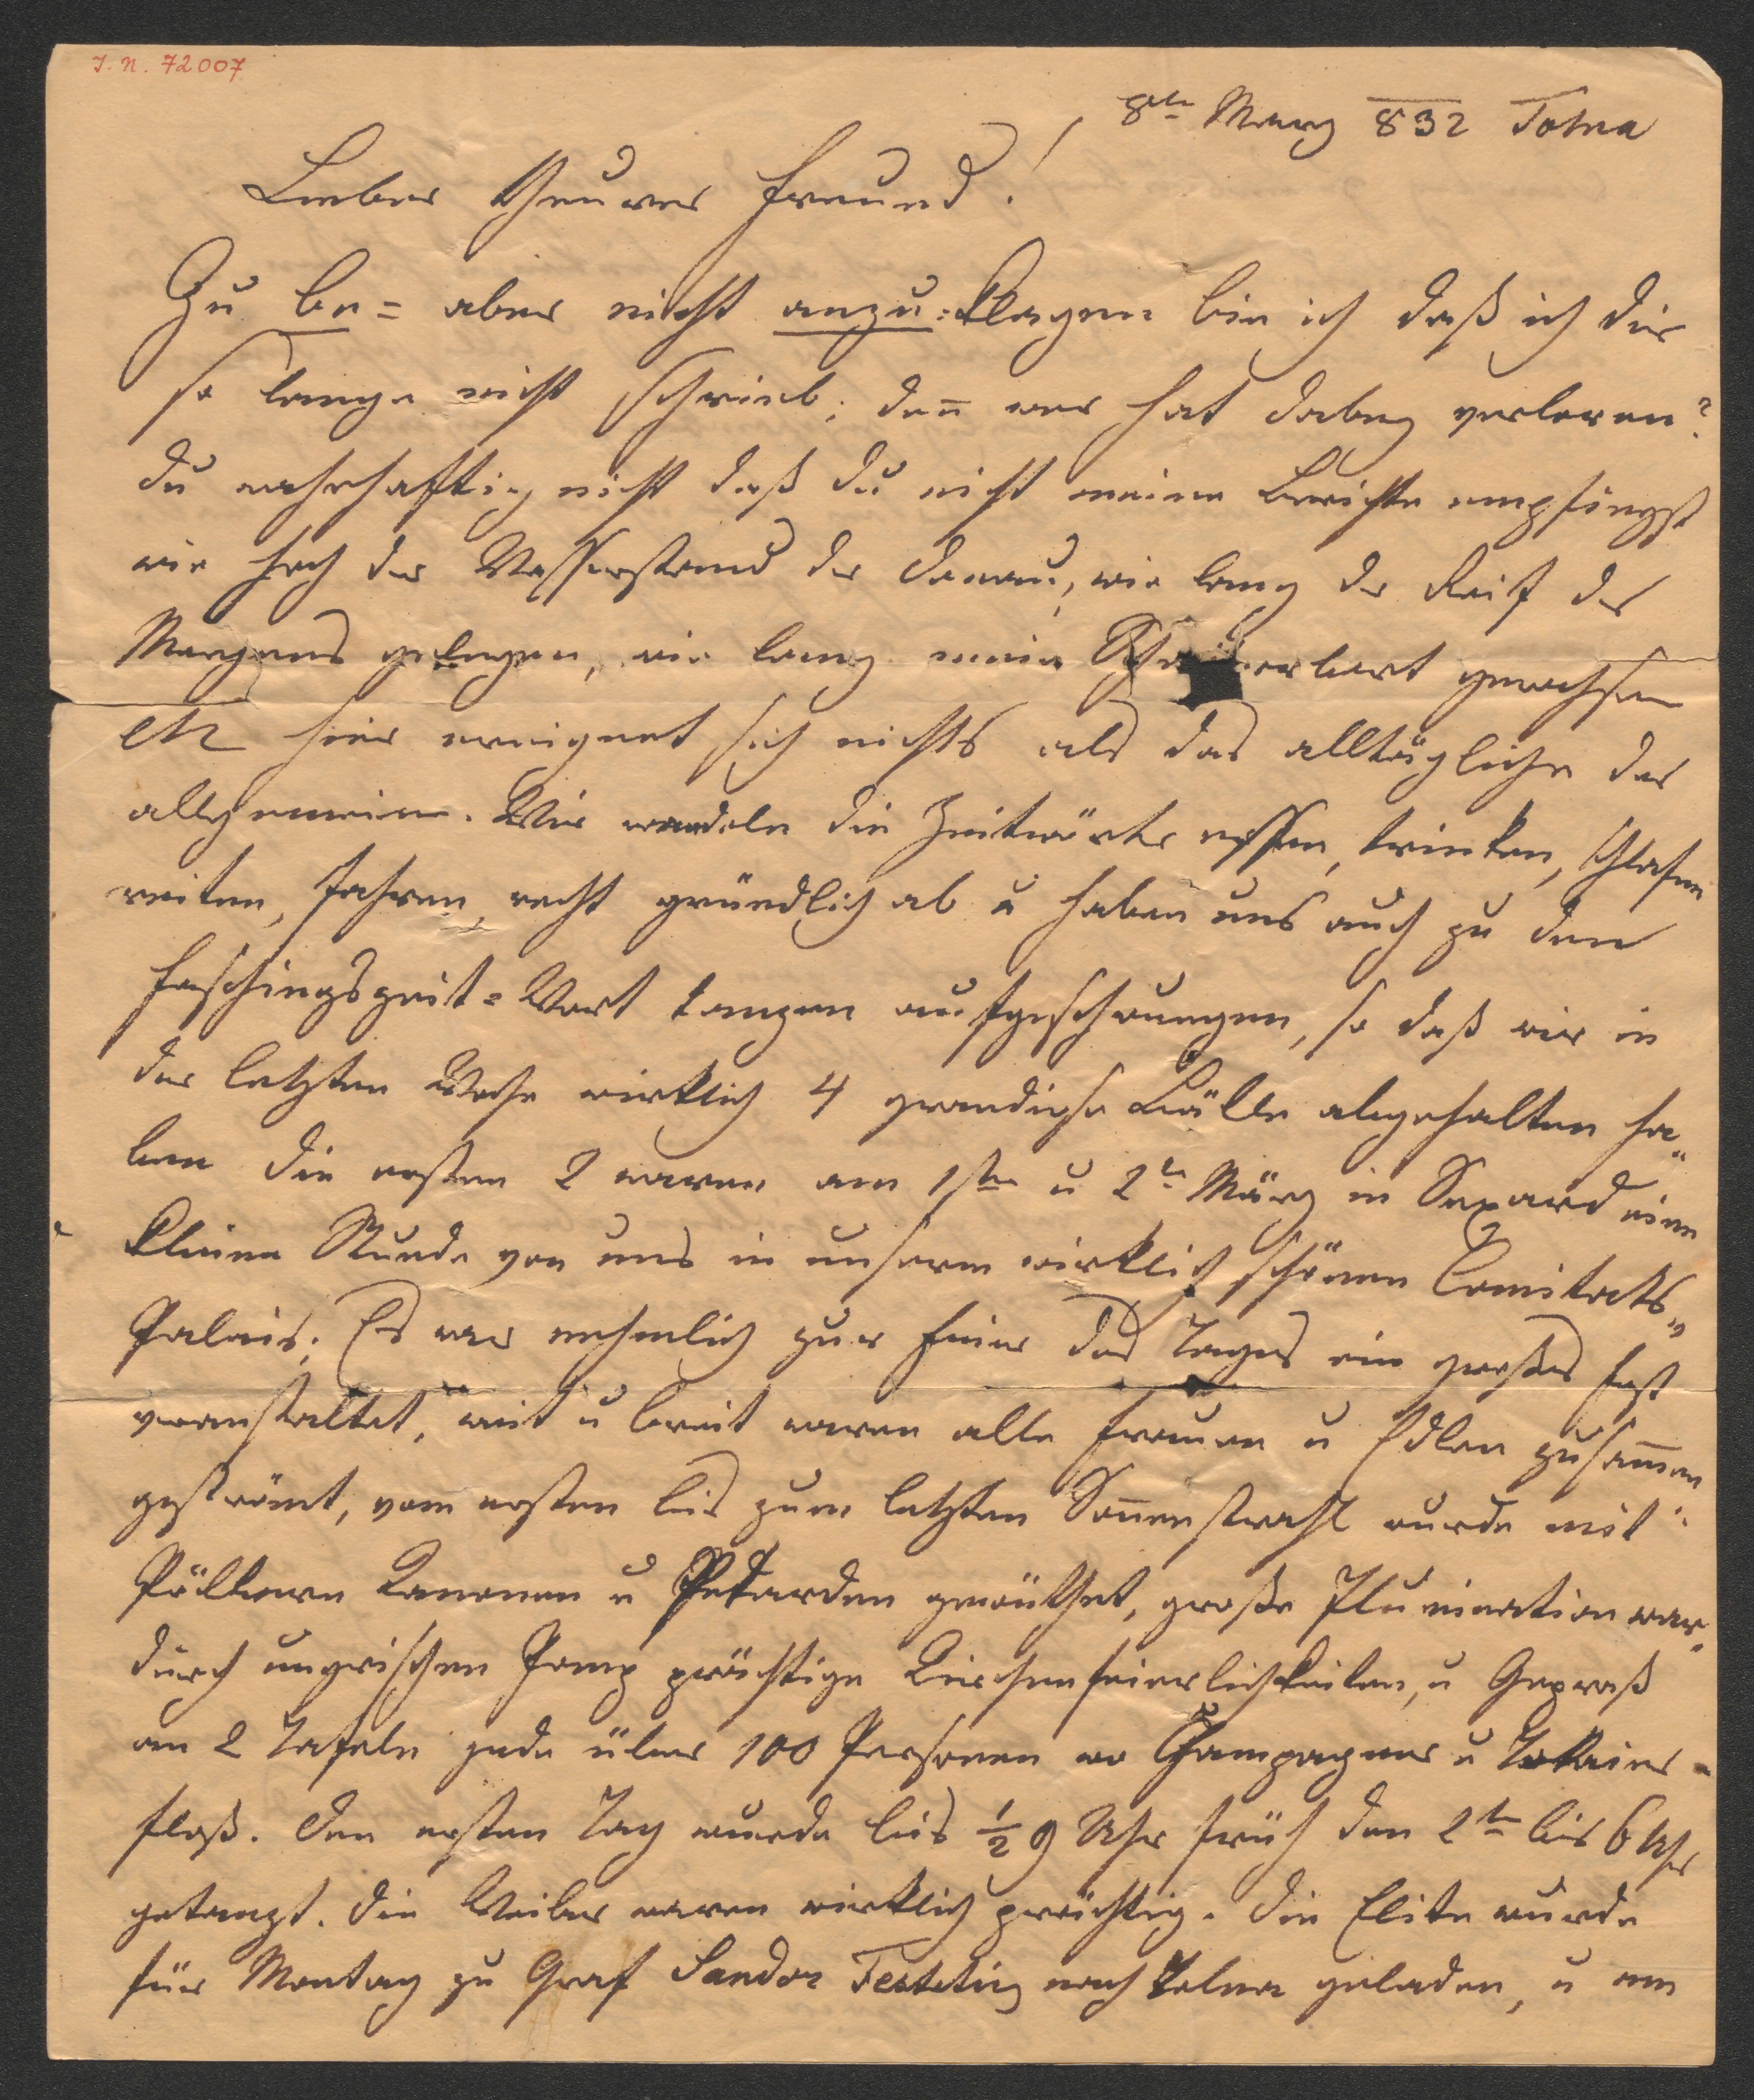 I. N. 72007
8te Marz 832 Tolna
Lieber theurer Freund!
Zu be= aber nicht anzu=klagen bin ich daß ich dir
so lange nicht schrieb; den̄ wer hat dabey verloren?
du wahrhafftig nicht daß du nicht meine Berichte empfingst
wie hoch der Wasserstand der Donau, wie lang der Reif des
Morgens gelegen, wie lang mein gewachsen
etz hier ereignet sich nichts als das alltägliche das
allgemeine. Wir wandeln die Zeitwörter essen, trinken, schlafen
reiten, fahren, recht gründlich ab u haben uns auch zu dem
Faschingszeit=Wort tanzen aufgeschwungen, so daß wir in
der letzten Woche wirklich 4 grandiose Bälle abgehalten ha"
ben die ersten 2 waren am 1ten u 2t März in Sexard eine
kleine Stunde von uns in unserm wirklich schönen Comitats"
Palais; Es war nehmlich zur Feier des Tages ein großes Fest
veranstaltet, weit u breit waren alle Frauen u Edlen zusam̄en
geströmt, vom ersten bis zum letzten Son̄enstrahl wurde mit
Pöllern Kanonen u Petarden gewüthet, große Illumination war
durch ungrischen Pomp prächtige Kirchenfeierlichkeiten, u Gepraß
an 2 Tafeln jede über 100 Personen wo Champagner u Tokaier
floß. Den ersten Tag wurde bis ½ 9 Uhr früh den 2tn bis 6 Uhr
getanzt. Die Weiber waren wirklich prächtig. Die Elite wurde
für Montag zu Graf Sandor Festetitz nach Tolna geladen, u am